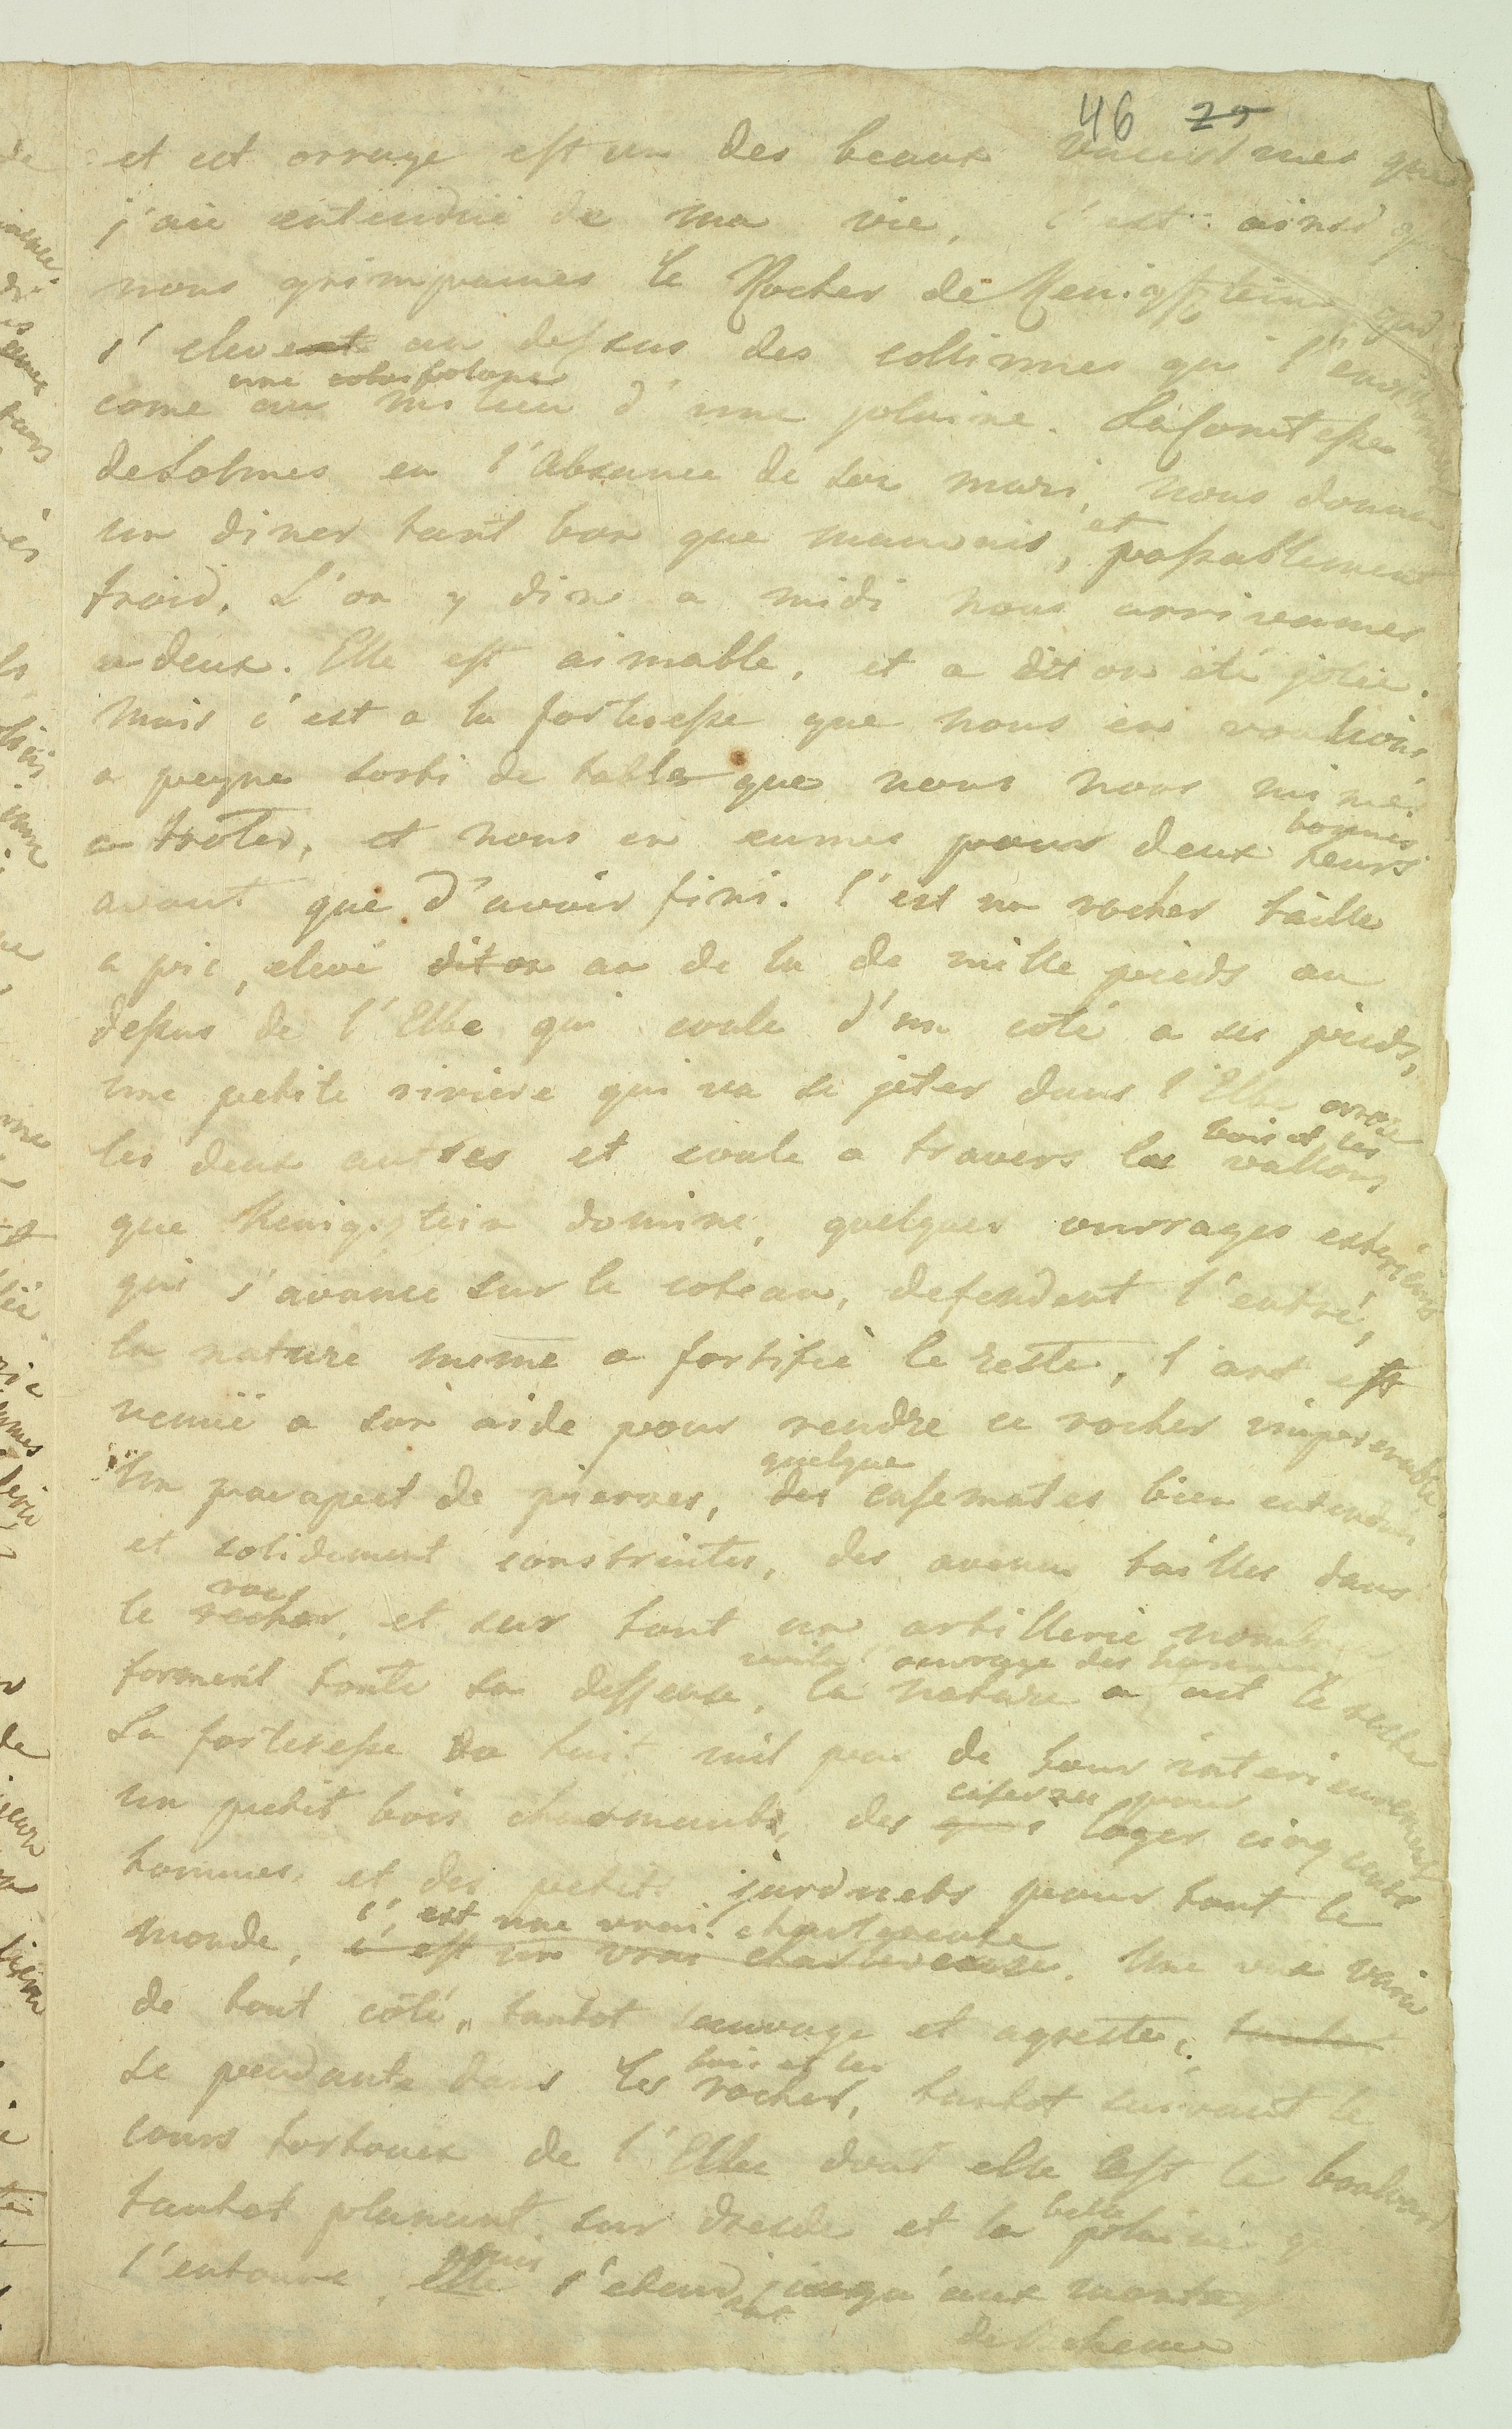 46 29
et cet orrage est un des beaux que
j'aie entenduë de ma vie, c'est ainsi que
nous grimpames le Rocher de Kenigstein, qui
s'eleve au dessus des collinnes qui l'environnent
une
come au milieu d'une plaine. La Comtesse
de Solmes en l'Absance de son mari, nous donna
un diner tant bon que mauvais, et passablement
froid. L'on y dine a midi nous arrivames
a deux. Elle est aimable, et a dit on été jolie.
Mais c'est a la forteresse que nous en voulions,
a peyne sorti de table que nous nous mimes
bonnes
a troter, et nous en eumes pour deux heurs
avant que d'avoir fini. C'est un rocher taille
a pic, elevé dit on au de la de mille pieds au
dessus de l'Elbe qui coule d'un coté a ses pieds,
une petite riviere qui va se jeter dans l'Elbe arose
bois et les
les deux autres et coule a travers les vallons,
que Kenigstein domine, quelques ouvrages exterieurs
qui s'avance sur le coteau, defendent l'entré,
la nature meme a fortifié le reste, l'art est
venuë a son aide pour rendre ce rocher imprenable.
quelque
Un parapet de pierres, des casemates bien entendus,
et solidement construites, des avenus tailles dans
roc
le rocher, et sur tout un artillerie
voila l'ouvrage des hommes
forment toute sa deffense, la nature a fait le reste
La forteresse a huit mil pas de tour interieurement
casernes pour
un petit bois charmant, des loger cinq cents
hommes, et des petits jardinets pour tout le
c'est une vrai chartreuse
monde, c'est un vrai chartereuse. Une vue varie
de tout côté, tantot sauvage et agreste, tantot
bois et les
se perdante dans les rocher, tantot suivant le
cours tortoueux de l'Elbe dont elle est le boulvard
belle
tantot planant sur dresde et la plaine qui
puis
l'entoure, elle s'etend jusqu'aux montag
ant
de